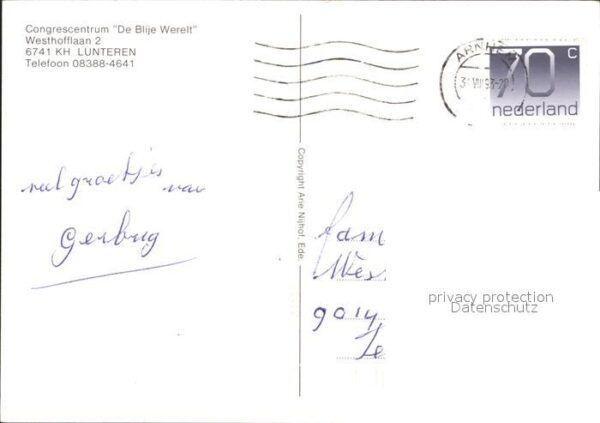 Congrescentrum "De Blije Werelt"
Westhofflaan 2
6741 KH LUNTEREN
Telefoon 08388-4641
ARNHE
70 C
nederland
veel groetjes
van
Gerbrig
Copyright Arie Nijhof, Ede.
fam
Wes
9014
privacy protection
Datenschutz